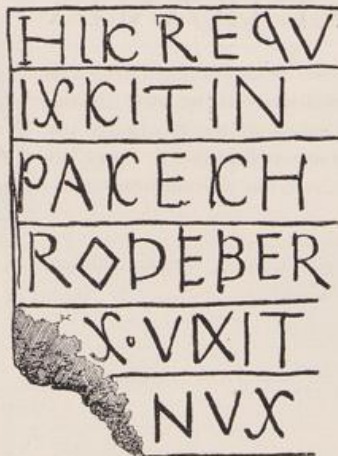 HIC REQV
IXCIT IN
PACE CH
RODEBER
X·VIXIT
NVX